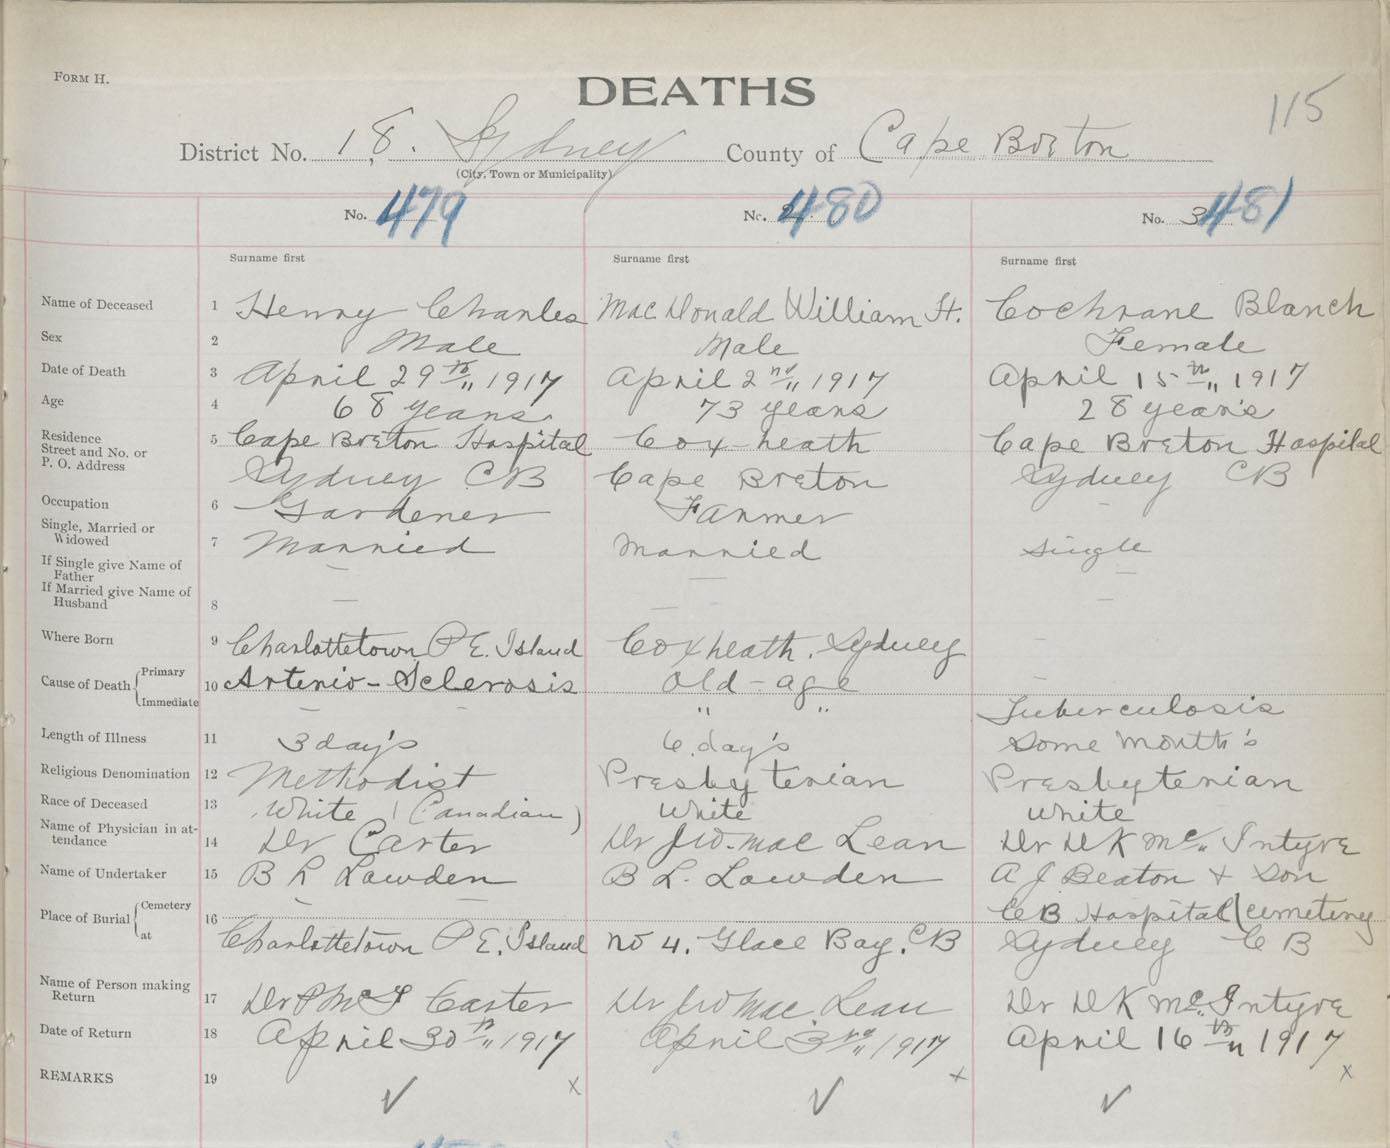 FORM H.
DEATHS
115
District No. 18. Sydney County of Cape Breton
(City, Town or Municipality)
No. 479 No. 480 No. 3 481
Surname first Surname first Surname first
Name of Deceased 1 Henry Charles MacDonald William H. Cochrane Blanch
Sex 2 Male Male Female
Date of Death 3 April 29th 1917 April 2nd 1917 April 15th 1917
Age 4 68 years 73 years 28 year's
Residence Street and No. or P. O. Address 5 Cape Breton Hospital Cox-heath Cape Breton Hospital
Sydney CB Cape Breton Sydney CB
Occupation 6 Gardener Farmer –
Single, Married or Widowed 7 Married Married Single
If Single give Name of Father — — —
If Married give Name of Husband 8 — — — –
Where Born 9 Charlottetown P E. Island Coxheath. Sydney –
Cause of Death Primary 10 Arterio-Sclerosis Old-age –
Immediate – – " " Tuberculosis
Length of Illness 11 3 day's 6 day's Some Month's
Religious Denomination 12 Methodist Presbyterian Presbyterian
Race of Deceased 13 White (Canadian) White White
Name of Physician in attendance 14 Dr Carter Dr J W. Mac Lean Dr D K Mc Intyre
Name of Undertaker 15 B L Lowden B L. Lowden A J Beaton + Son
Place of Burial Cemetery 16 – – – CB Hospital (cemetery
at Charlottetown P E. Island No 4. Glace Bay. CB Sydney C B
Name of Person making Return 17 Dr P McF Carter Dr J W Mac Lean Dr D K Mc Intyre
Date of Return 18 April 30th 1917 April 3rd 1917 April 16th 1917
REMARKS 19 ✓ x ✓ x ✓ x